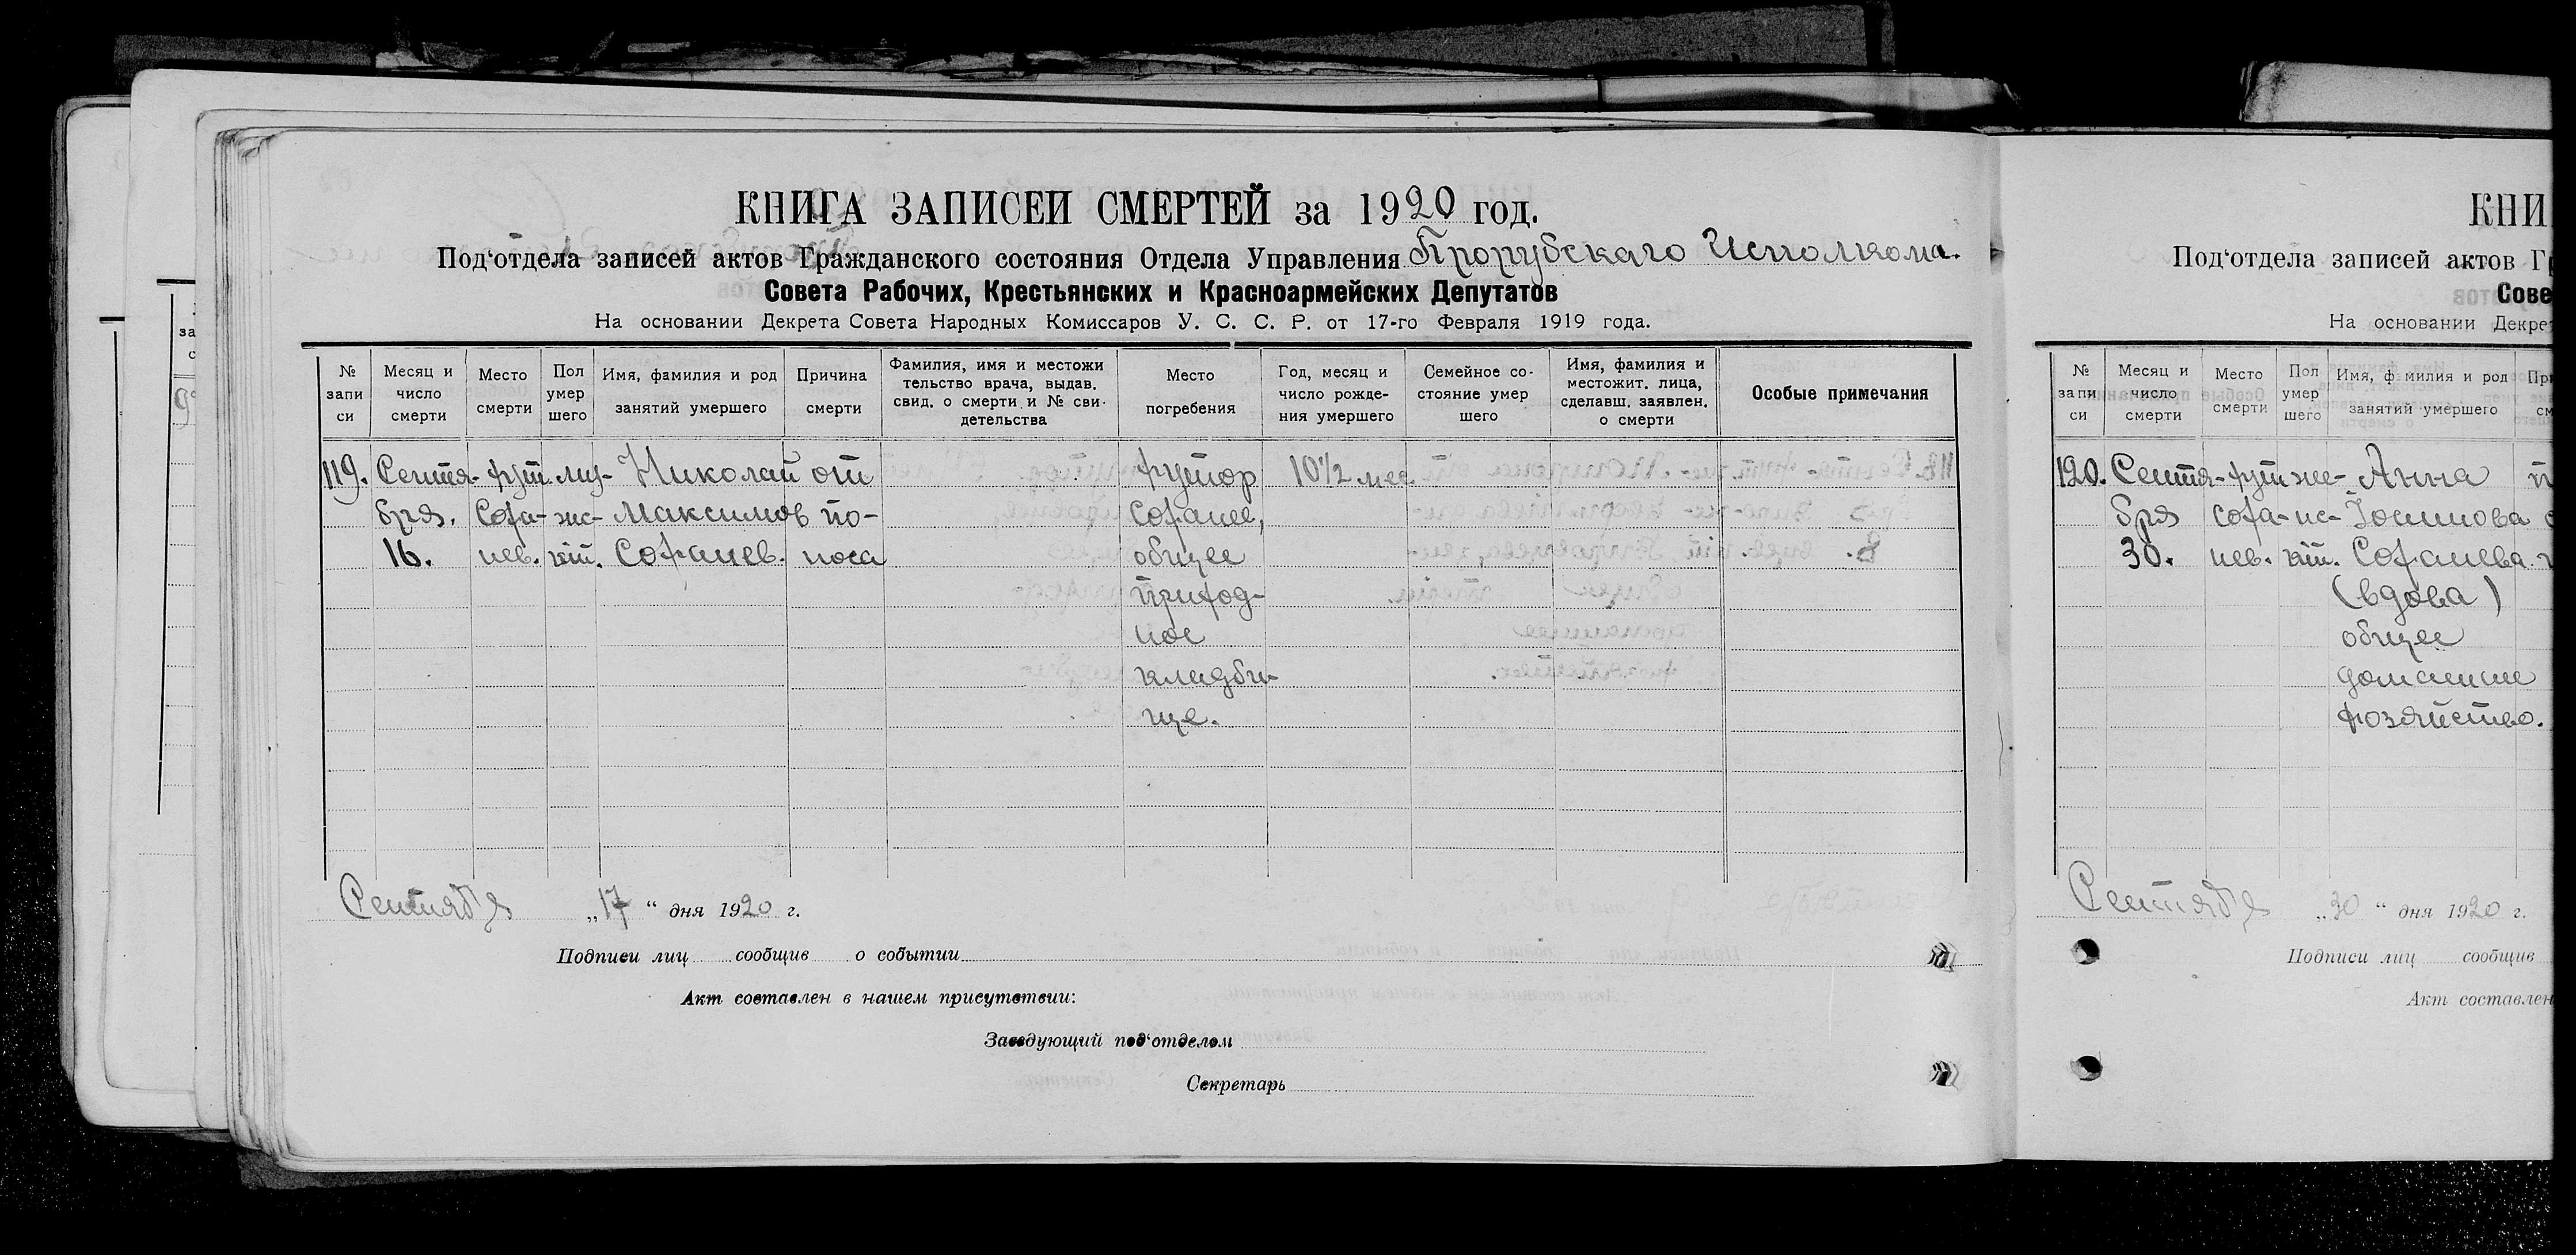 КНИГА ЗАПИСЕИ СМЕРТЕЙ за 1920 год.
Под‘отдела записей актов Гражданского состояния Отдела Управления Прорубскаго Исполкома.
Совета Рабочих, Крестьянских и Красноармейских Депутатов
На основании Декрета Совета Народных Комиссаров У. С. С. Р. от 17-го Февраля 1919 года.
№ запи си
Месяц и число смерти
Место смерти
Пол умер шего
Имя, фамилия и род занятий умершего
Причина смерти
Фамилия, имя и местожи тельство врача, выдав. свид. о смерти и № сви- детельства
Место погребения
Год, месяц и число рожде- ния умершего
Семейное со- стояние умер шего
Имя, фамилия и местожит. лица, сделавш. заявлен. о смерти
Особые примечания
119. Сентя- хут. му- Николай от хутор 10½ мес.
бря. Соха- жс- Максимов по-
16. нев. кій. Соханев. носа общее
приход-
ное
кладби-
ще.
Сентября „17“ дня 1920 г.
Подписи лиц сообщив о событии
Акт составлен в нашем присутствии:
Заведующий под‘отделом
Секретарь
КНИ
Под‘отдела записей актов Г
Сове
На основании Декре
№ запи си
Месяц и число смерти
Место смерти
Пол умер шего
Имя, фамилия и род занятий умершего
120. Сентя- хут же- Анна
бря Соха- нс-
30. нев. кій. Соханева.
(вдова)
общее
домашнее
хозяйство.
Сентября „30“ дня 1920 г.
Подписи лиц сообщив
Акт составлен